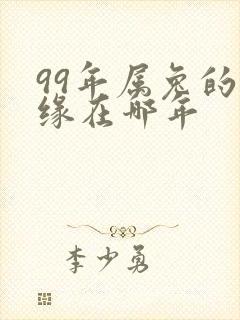 99年属兔的
缘在哪年
李少勇